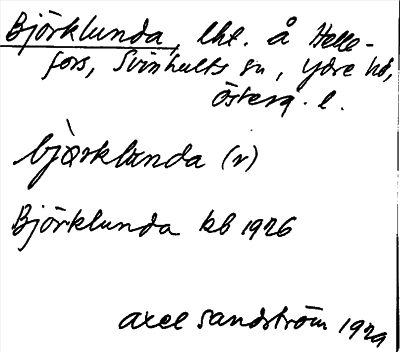 Björklunda, lht. å Helle-
fors, Svinhults sn, Ydre hd,
Österg. l.
bjørklùnda (r)
Björklunda kb 1926
Axel Sandström 1929